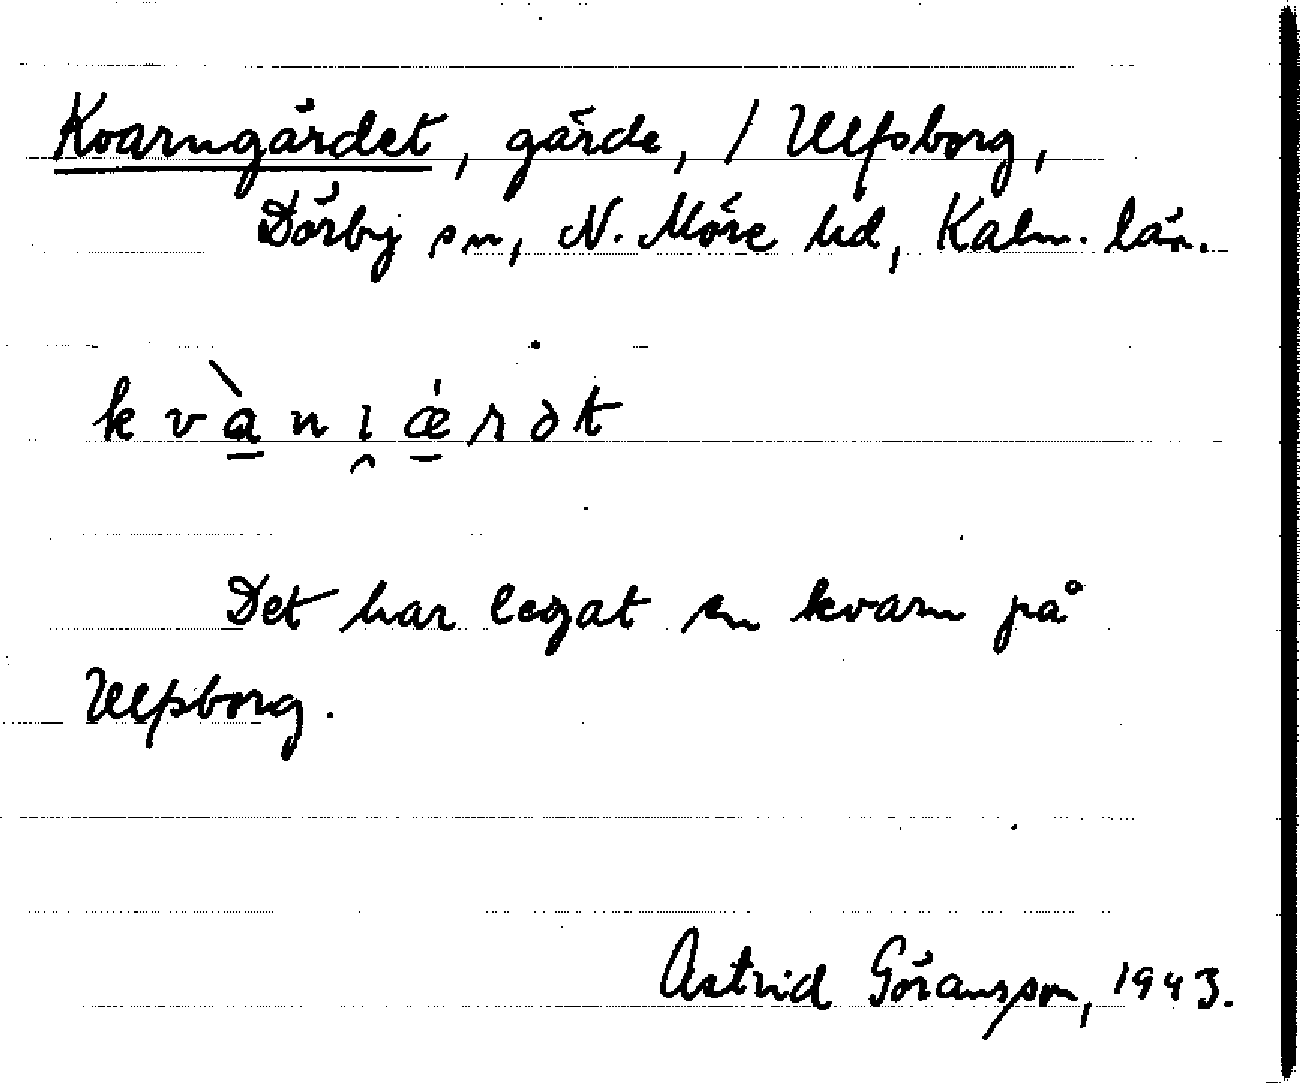 Kvarngärdet, gärde, / Ulfsborg,
Dörby sn, N. Möre hd, Kalm. län.
k v à̱ n i̯ ǽ̱ r ə t
Det har legat en kvarn på
Ulfsborg.
Astrid Göransson, 1943.